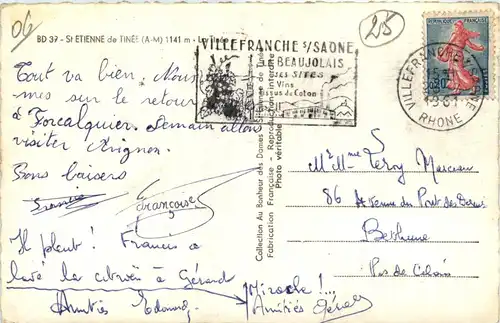 06
25
BD 37 - St ETIENNE de TINÉE (A-M) 1141 m -
VILLEFRANCHE s/SAONE
BEAUJOLAIS
SES SITES
Vins
Tissus de Coton
VILLEFRANCHE
RHONE
Tout va bien. Nous
mes sur le retour
à Forcalquier. Demain allons
visiter Avignon.
Bons baisers
Francis
Françoise
Il pleut ! Francis a
lavé la citroën à Gérard
Amitiés Edouard
Miracle !...
Amitiés Gérard
Collection Au Bonheur des Dames
Fabrication Française - Reproduction interdite
Photo véritable
Mr Mme Leroy Marceau
86 Avenue du Pont des Dames
Béthune
Pas de Calais